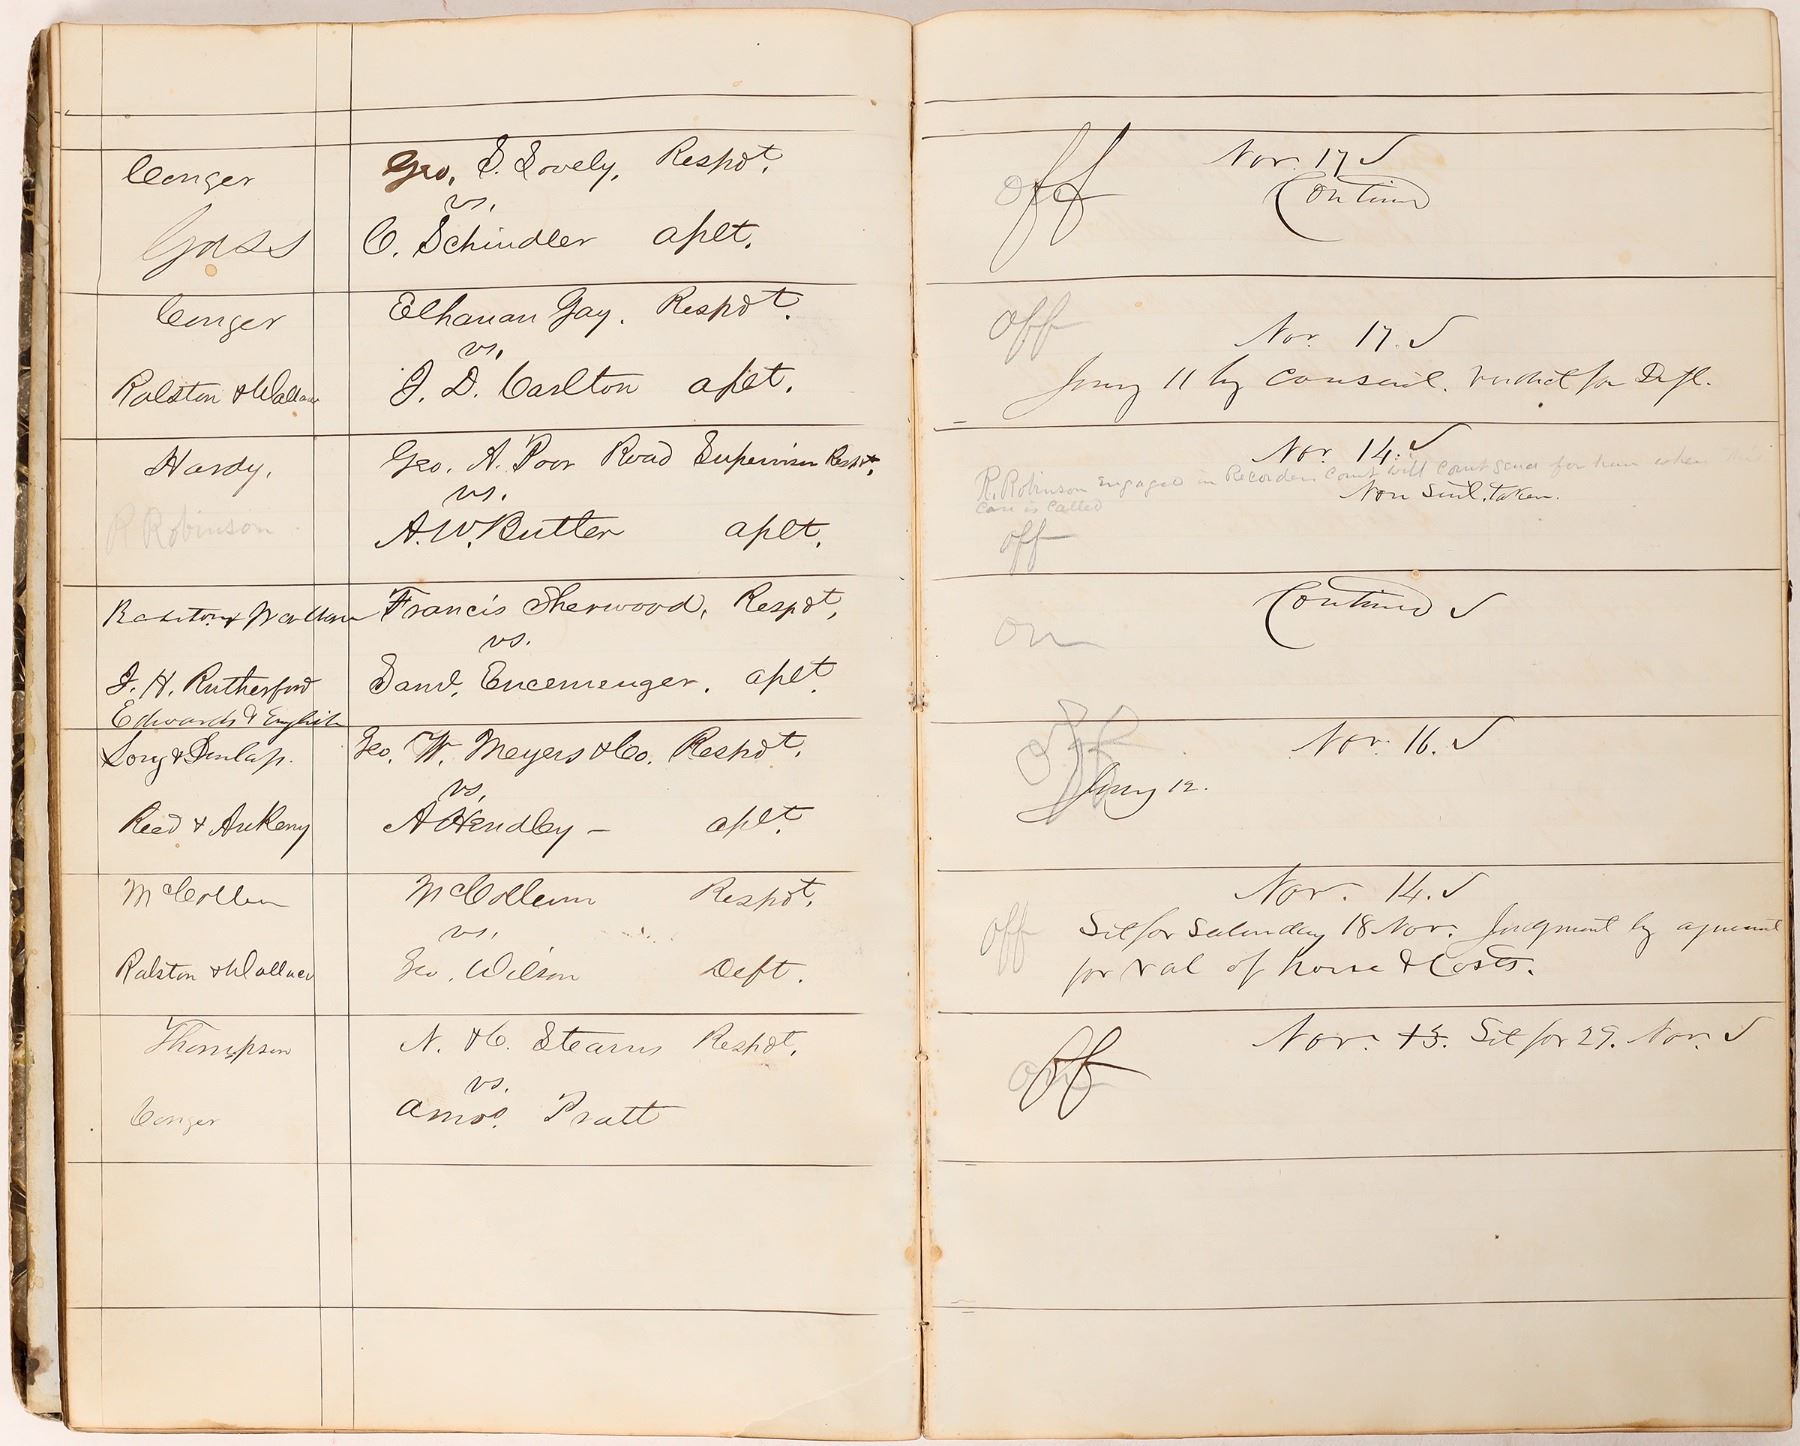 Conger Geo. S. Lovely, Respdt. off Nov. 17 ✓
vs. Continued
Gass C. Schindler aplt.
Conger Elhanan Gay. Respdt. off Nov. 17. ✓
vs.
Ralston & Wallace J. D. Carlton aplt. Jury 11 by consent. Verdict for Deft.
Hardy. Geo. A. Poor Road Supervisor Respdt. Nov. 14. ✓
R. Robinson engaged in Recorders Court will Court send for him when
vs. Non Suit. taken.
case is called
R Robinson A. W. Butler aplt. off
Ralston & Wallace Francis Sherwood, Respdt, on Continued ✓
vs.
J. H. Rutherford Saml. aplt.
Edwards & English
Long & Dunlap. Geo. W. Meyers & Co. Respdt. off Nov. 16. ✓
vs. Jury 12.
Reed & Ankeny A Hendley – aplt.
McCollum McCollum Respdt. Nov. 14. ✓
vs. off Set for Saturday 18 Nov. Judgment by agreement
Ralston & Wallace Geo. Wilson Deft. for val of horse & Costs.
Thompson N. & C. Stearns Respdt. off Nov. 13. Set for 29. Nov. ✓
vs.
Conger Amos. Pratt